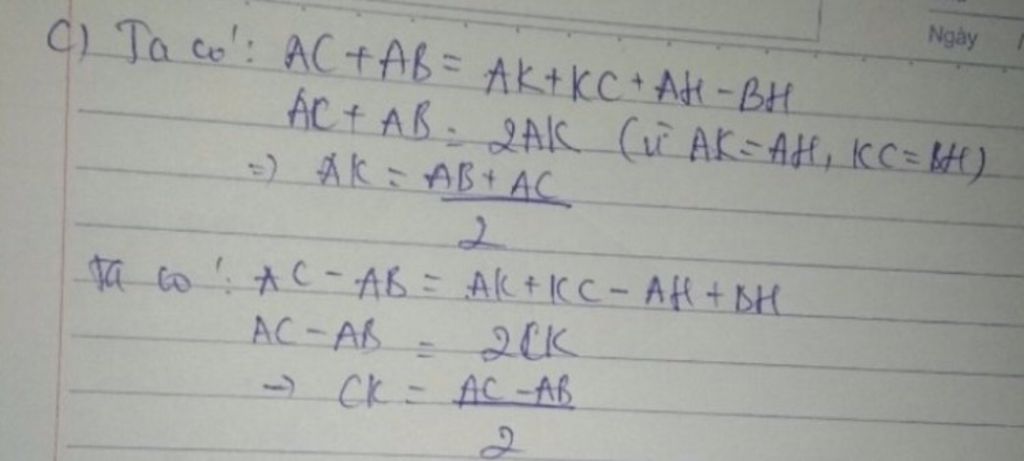 Ngày
C) Ta có: AC + AB = AK + KC + AH - BH
AC + AB = 2AK (vì AK = AH, KC = BH)
=) AK = AB + AC
2
Ta có: AC - AB = AK + KC - AH + BH
AC - AB = 2CK
→ CK = AC - AB
2